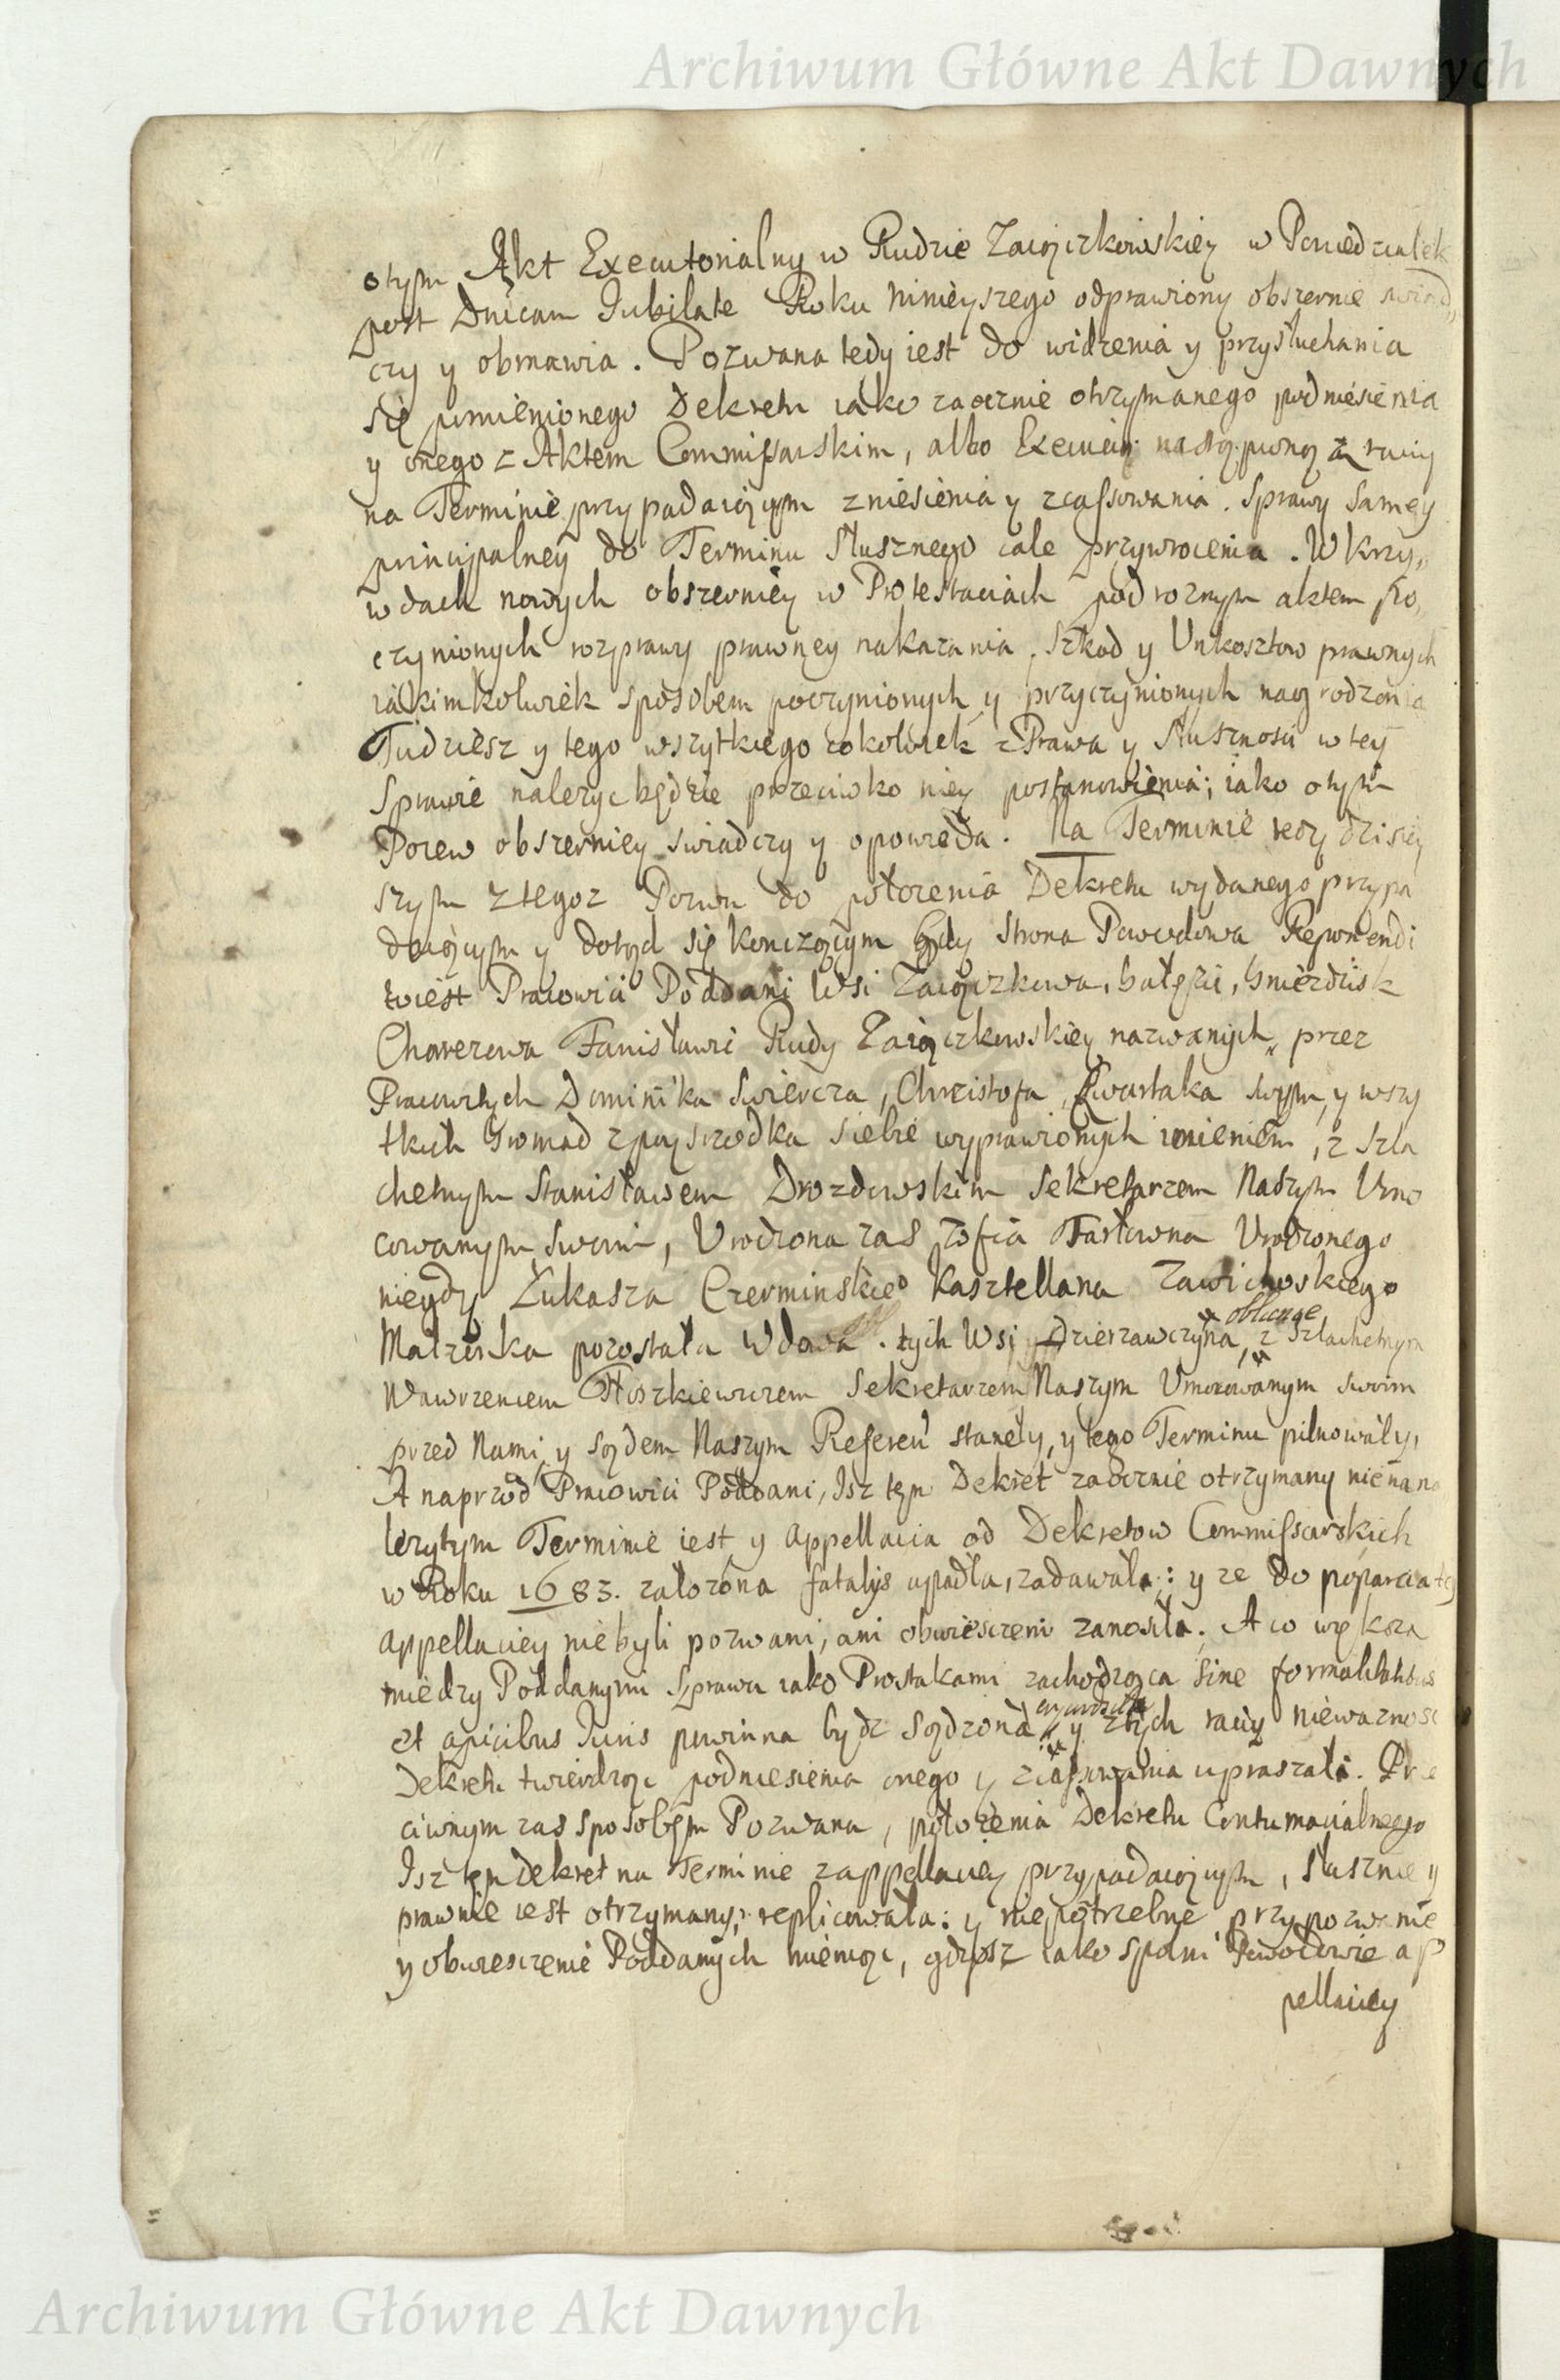 Archiwum Główne Akt Dawnych
otym Akt Executorialny w Rudzie Zaiączkowskiey w Poniedziałek
post Dnicam Jubilate Roku ninieyszego odprawiony obszernie swiad,,
czy y obmawia. Pozwana tedy iest do widzenia y przysłuchania
się pomienionego Dekretu iako zaocznie otrzymanego podniesienia
y onego z Aktem Commissarskim, albo Execucią nastąpioną z raciy
na Terminie przypadaiącym zniesienia y zcassowania. Sprawy samey
principalney do Terminu słusznego cale przywrocenia. W krzy,,
wdach nowych obszerniey w Protestaciach pod roznym aktem po,,
czynionych rozprawy prawney nakazania, szkod y Unkosztow prawnych
iakimkolwiek sposobem poczynionych y przyczynionych nagrodzenia
Tudziesz y tego wszytkiego cokolwiek z Prawa y słusznosci w tey
Sprawie nalezyc będzie przeciwko niey postanowienia; iako otym
Pozew obszerniey swiadczy y opowieda. Na Terminie tedy dzisiey
szym z tegoz Pozwu do położenia Dekretu wydanego przypa
daiącym y dotąd się konczącym gdy strona Powodowa Reponendi
to iest Pracowici Poddani Wsi Zaiączkowa, Gałęzic, Gnieździsk
Chorezowa Fanisławic Rudy Zaiączkowskiey nazwanych, przez
Pracowitych Dominika Swiercza, Chrzistofa Kwartaka swym, y wszy
tkich Gromad z posrzodka siebie wyprawionych imieniem, z Szla
chetnym Stanisławem Drozdowskim Sekretarzem Naszym Umo
cowanym swoim, Urodzona zas Zofia Tarłowna Urodzonego
niegdy Łukasza Czerminskieo Kasztellana Zawichoskiego
Małzonka pozostała Wdowa. tych Wsi Dzierzawczyna, oblicznie z Szlachetnym
Wawrzencem Sekretarzem Naszym Umocowanym swoim
przed Nami y Sądem Naszym Referen stanęły, y tego Terminu pilnowały,
A naprzod Pracowici Poddani, Isz ten Dekret zaocznie otrzymany nie na na
lezytym Terminie iest y appellacia od Dekretow Commissarskich
w Roku 1683. załozona fatalys upadła, zadawała: y ze do poparcia tey
appellaciey nie byli pozwani, ani obwiesczeni zanosiła. A co większa
między Poddanymi Sprawa iako Prostakami zachodząca sine formalitatibus
et apicibus Juris powinna bydz sądzona y z tych raciy niewaznosc
Dekretu twierdząc podniesienia onego y zcassowania upraszała. Prze
ciwnym zas sposobem Pozwana, położenia Dekretu Contumacialnego
Isz ten dekret na Terminie z appellaciey przypadaiącym, słusznie y
prawnie iest otrzymany, replicowała: y niepotrzebne przypozwanie
y obwiesczenie Poddanych mieniąc, gdysz iako sami Powodowie ap
pellaciey
Archiwum Główne Akt Dawnych